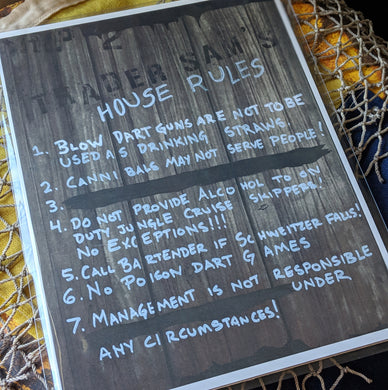 TRADER SAM'S
HOUSE RULES
1. BLOW DART GUNS ARE NOT TO BE
USED AS DRINKING STRAWS.
2. CANNIBALS MAY NOT SERVE PEOPLE!
3.
4. DO NOT PROVIDE ALCOHOL TO ON
DUTY JUNGLE CRUISE SKIPPER!
NO EXCEPTIONS!!!
5. CALL BARTENDER IF SCHWEITZER FALLS!
6. NO POISON DART GAMES
7. MANAGEMENT IS NOT RESPONSIBLE
UNDER
ANY CIRCUMSTANCES!